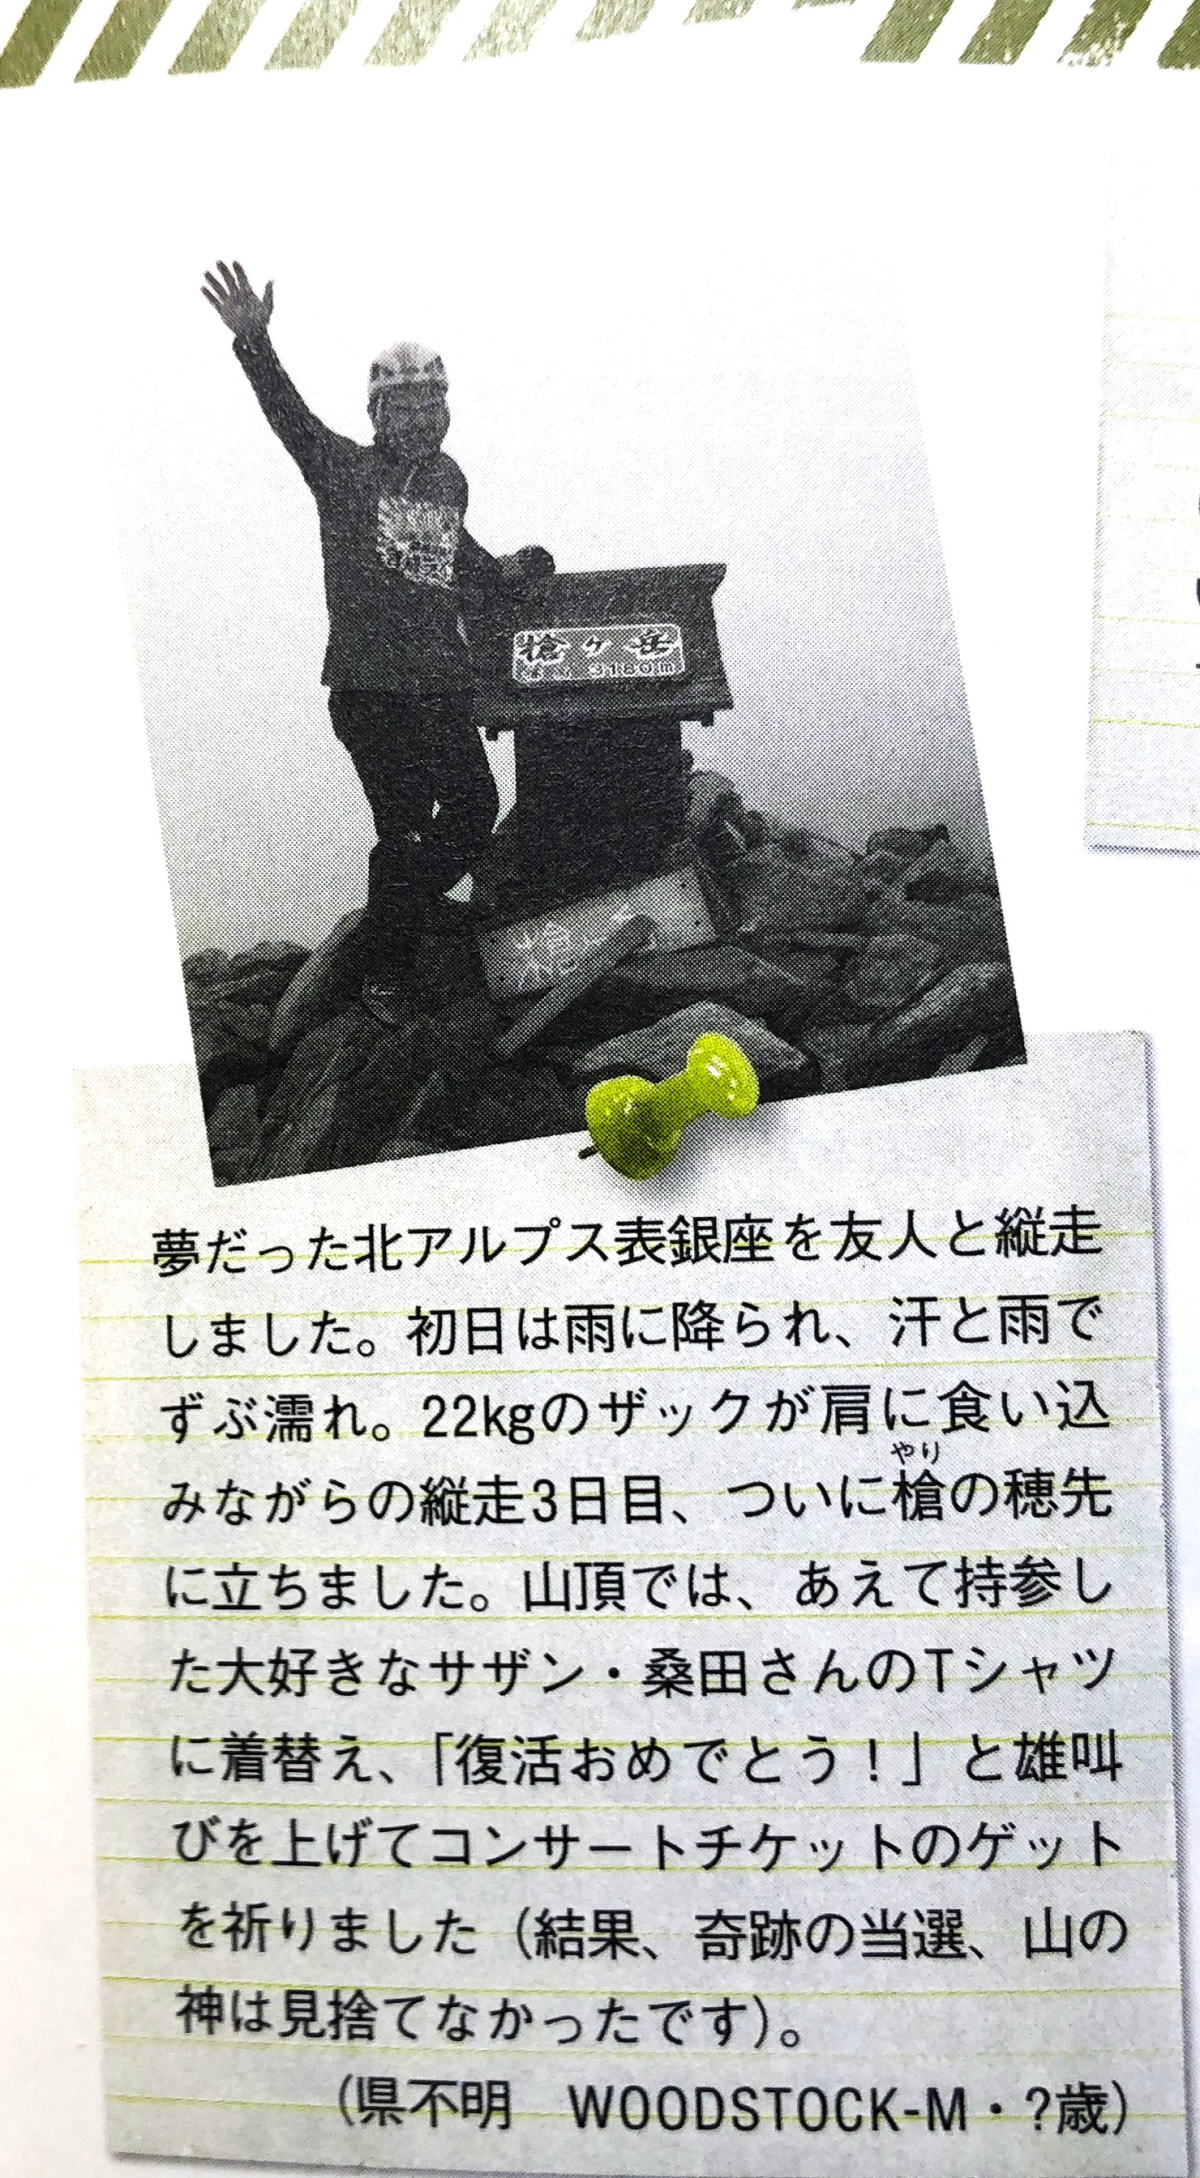 槍ヶ岳
3180m
槍
夢だった北アルプス表銀座を友人と縦走
しました。初日は雨に降られ、汗と雨で
ずぶ濡れ。22kgのザックが肩に食い込
やり
みながらの縦走3日目、ついに槍の穂先
に立ちました。山頂では、あえて持参し
た大好きなサザン・桑田さんのTシャツ
に着替え、「復活おめでとう！」と雄叫
びを上げてコンサートチケットのゲット
を祈りました（結果、奇跡の当選、山の
神は見捨てなかったです）。
（県不明　WOODSTOCK-M・?歳）